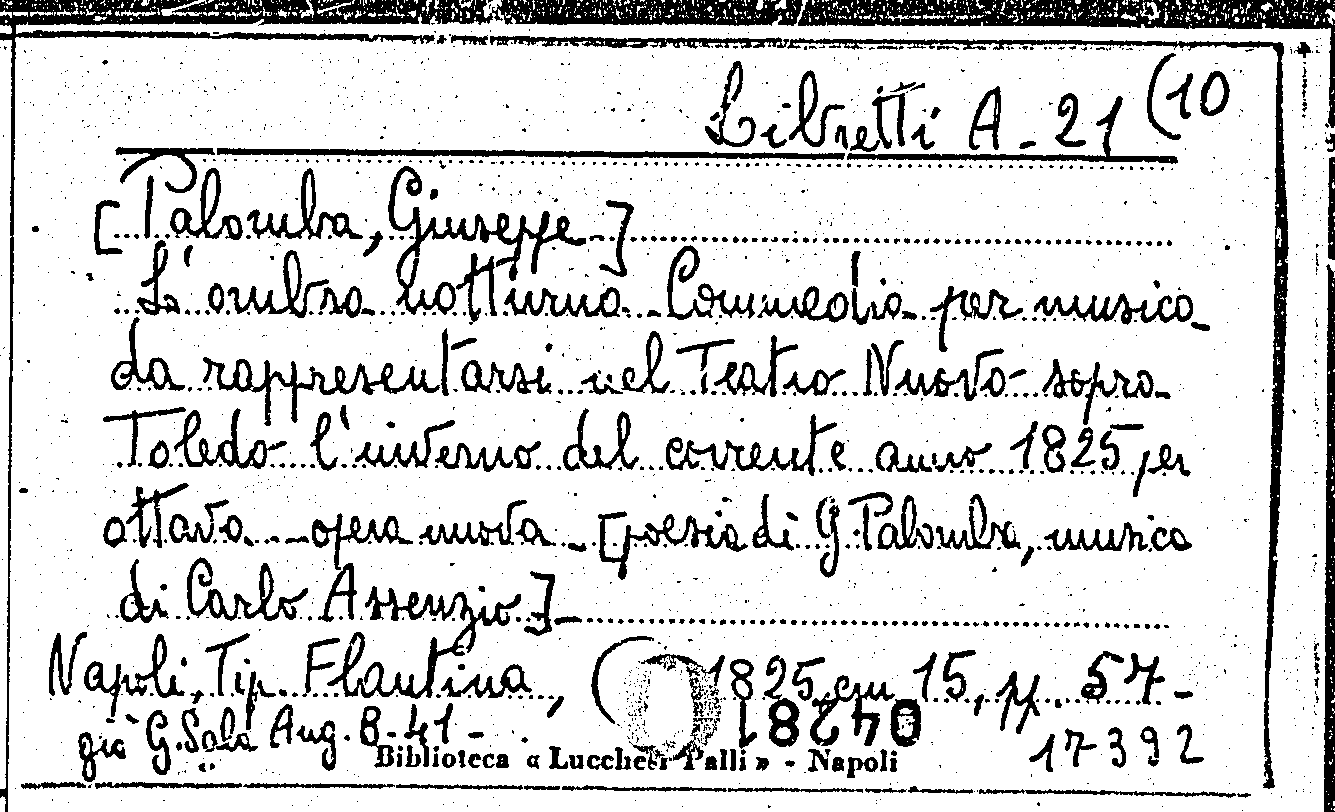 Libretti A - 21 (10
[Palomba, Giuseppe -]
L'ombra notturna - Commedia per musica
da rappresentarsi nel Teatro Nuovo sopra
Toledo l'inverno del corrente anno 1825 per
ottava - opera nuova - [poesia di G. Palomba, musica
di Carlo Assenzio] -
Napoli, Tip. Flautina, ( 1825, cm 15, pp. 57 -
già G. Sala Aug. B - 41 -
04281
17392
Biblioteca « Lucchesi Palli » - Napoli